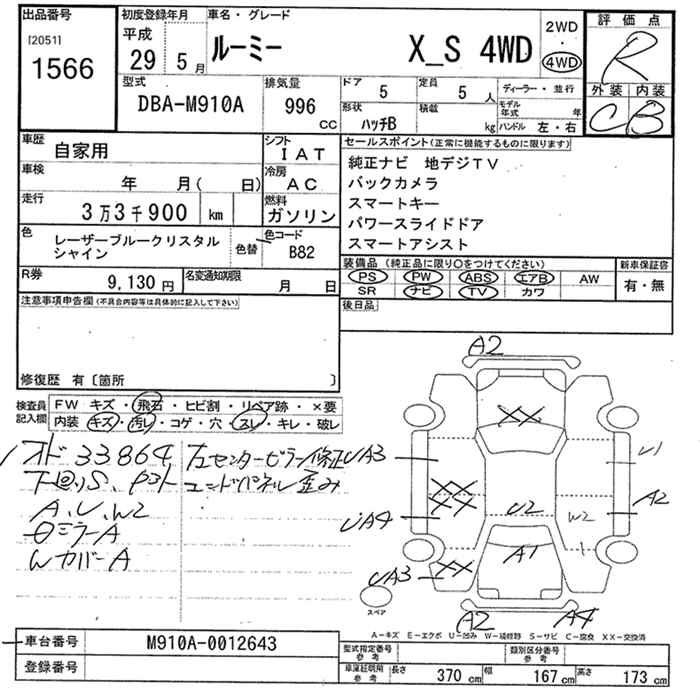 出品番号
[2051]
1566
初度登録年月
平成
29 5月
車名・グレード
ルーミー X_S 4WD
2WD
・
4WD
評価点
R
外装 内装
C B
型式
DBA-M910A
排気量
996
CC
ドア
5
定員
5 人
ディーラー・並行
形状
ハッチB
積載
kg
モデル年式 年
ハンドル 左・右
車歴
自家用
シフト
IAT
車検
年 月( 日)
冷房
AC
走行
3万3千900 km
燃料
ガソリン
色
レーザーブルークリスタル
シャイン
色替
色コード
B82
R券
9,130円
名変通知期限
月 日
セールスポイント(正常に機能するものに限ります)
純正ナビ 地デジTV
バックカメラ
スマートキー
パワースライドドア
スマートアシスト
装備品(純正品に限り○をつけてください)
PS PW ABS エアB AW
SR ナビ TV カワ
新車保証書
有・無
後日品
注意事項申告欄(不具合内容等は具体的に記入して下さい)
修復歴 有〔箇所 〕
検査員
記入欄
FW キズ・飛石・ヒビ割・リペア跡・×要
内装 キズ・汚レ・コゲ・穴・スレ・キレ・破レ
メオド 33864
下回りS、
A、U、W2
ミラーA
カバーA
左センターピラー修正
エンドパネル歪み
A2
XX
UA3
U1
XX
XX
A2
UA4
U2
W2
A1
UA3
XX
A2
A4
スペア
A-キズ E-エクボ U-凹み W-補修跡 S-サビ C-腐食 XX-交換済
車台番号
M910A-0012643
登録番号
型式指定番号
参考
類別区分番号
参考
車庫証明用
参考
長さ 370 cm 幅 167 cm 高さ 173 cm